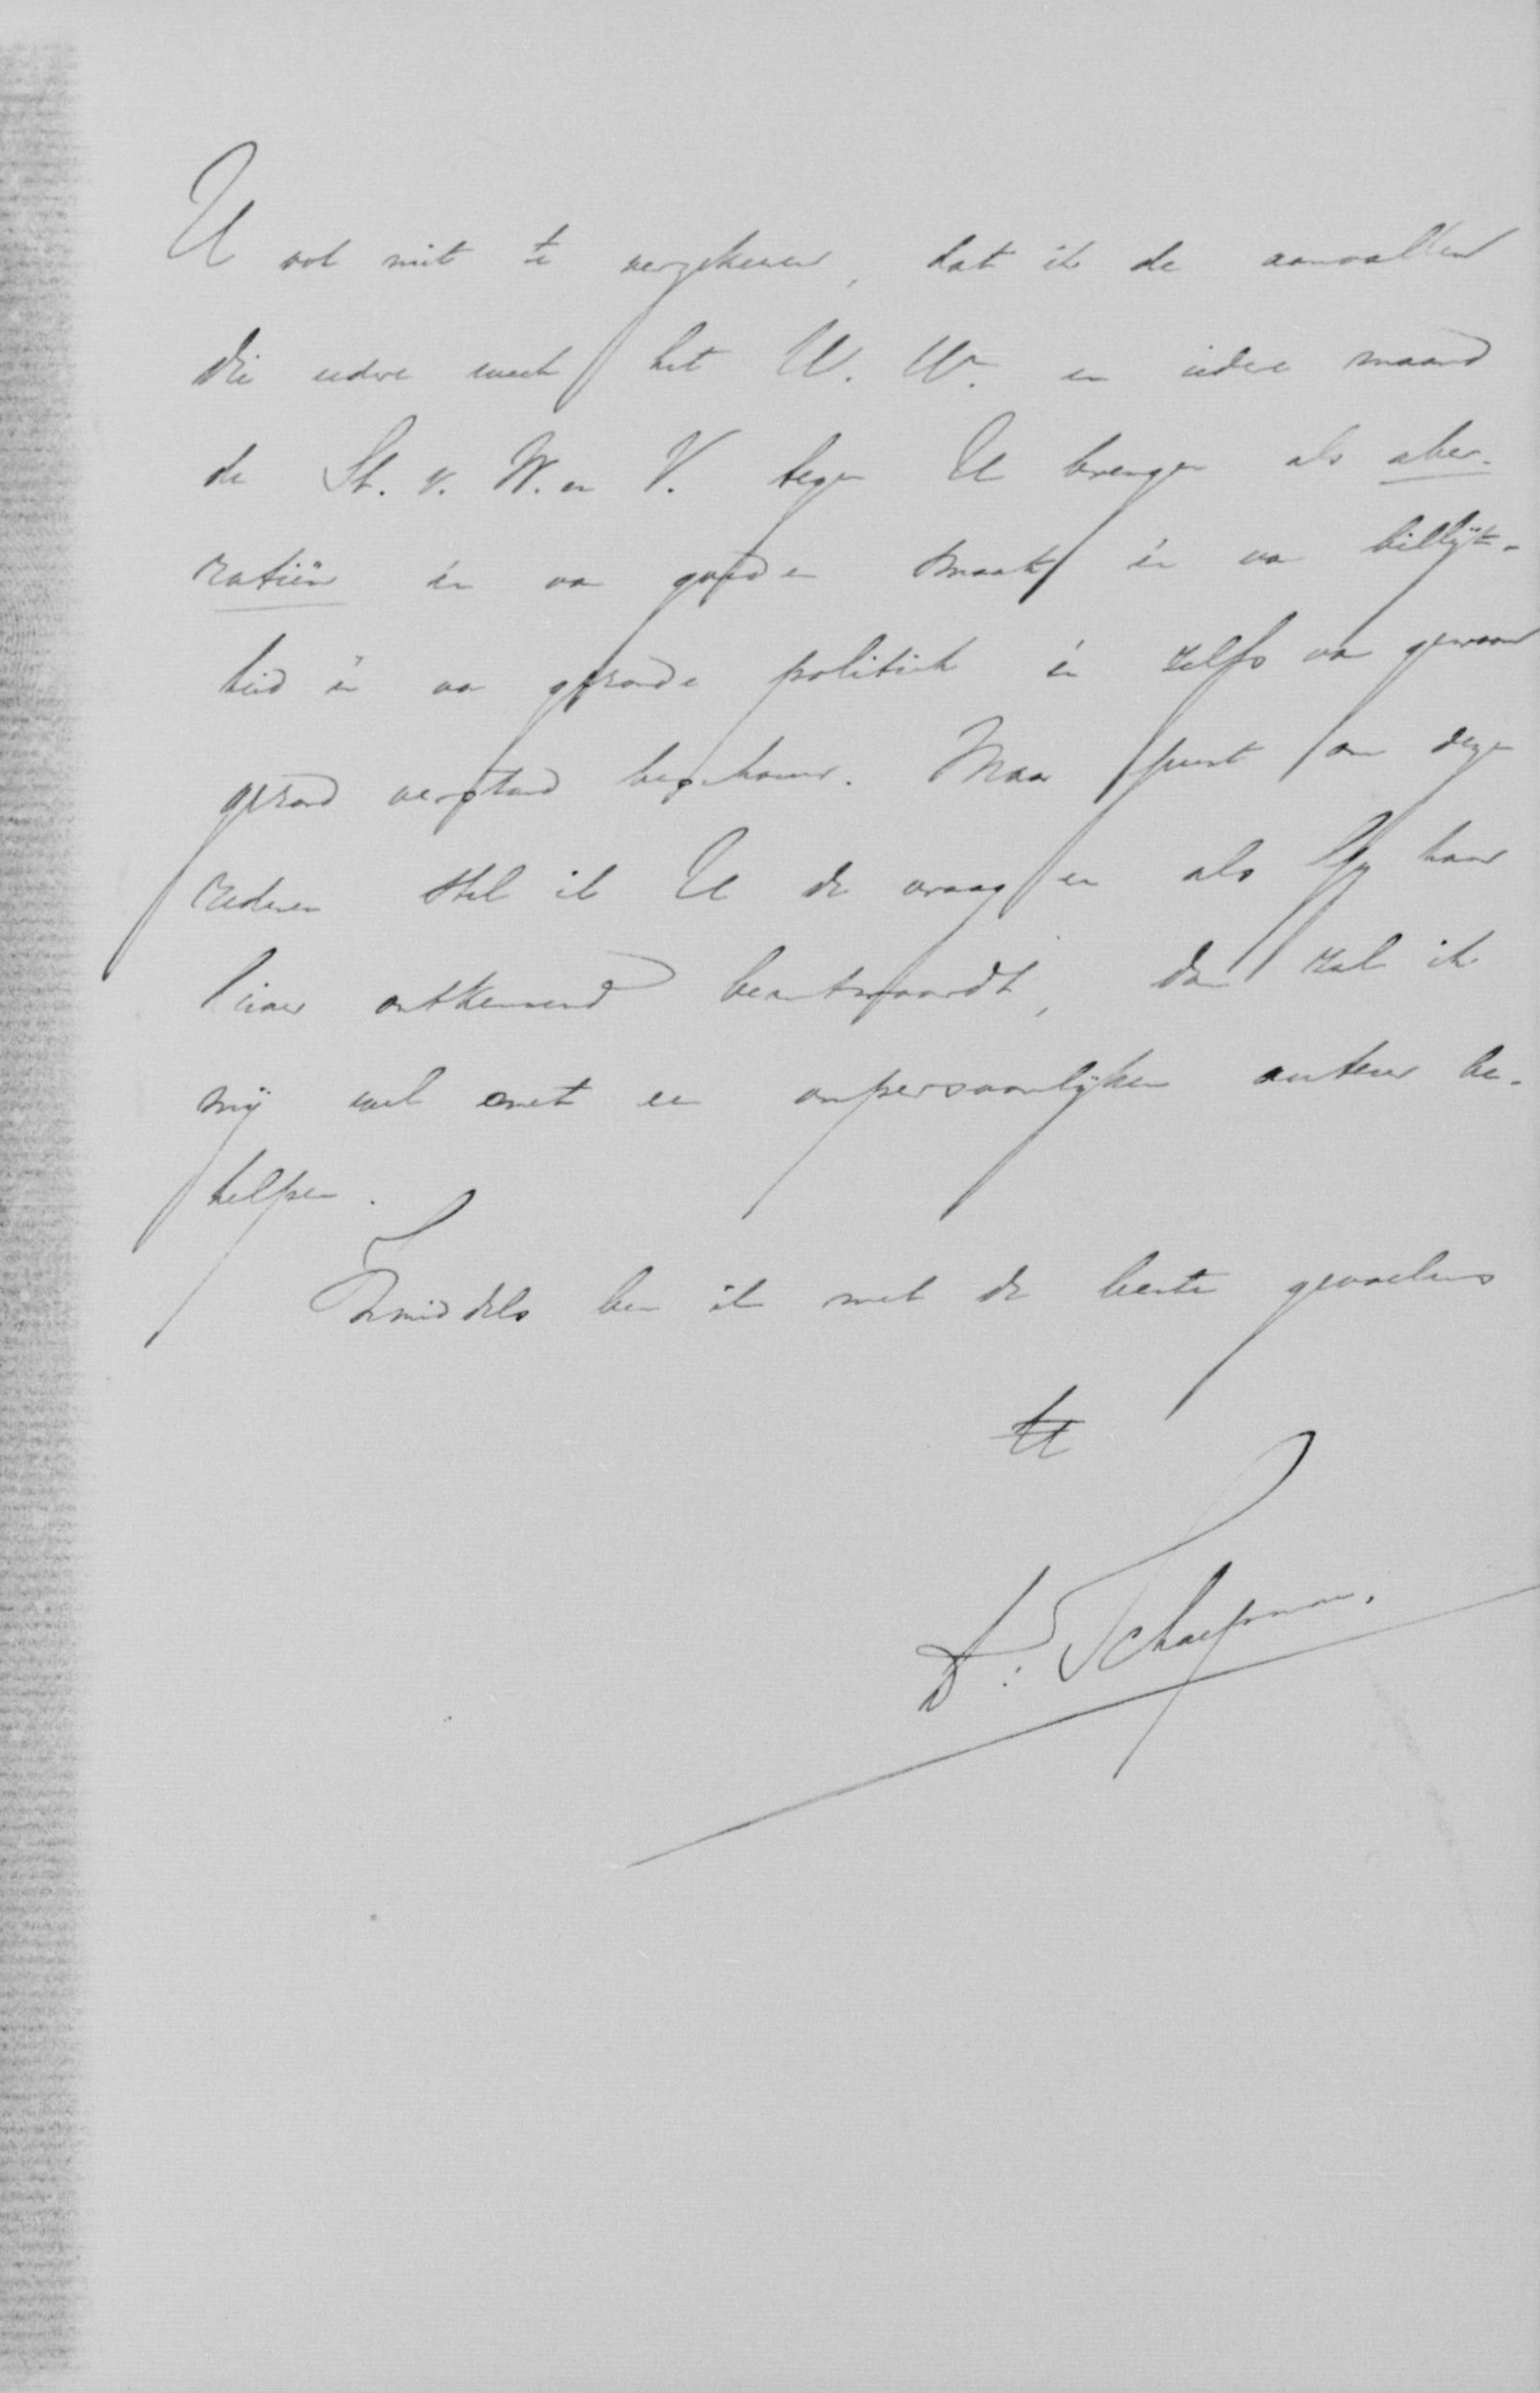 U ook niet te verzekeren, dat ik de aanvallen
die iedere week het W. W. en iedere maand
de St. v. W. en V. tegen U brengen als aber-
ratiën én van goeden smaak én van billijk-
heid én van gezonde politiek én zelfs van gewoon
gezond verstand beschouw. Maar juist om deze
redenen stel ik U de vraag en als Gij haar
liever ontkennend beantwoordt, dan zal ik
mij wel met een onpersoonlijken auteur be-
helpen.
Inmiddels ben ik met de beste gevoelens
tt
Dr: Schaepman.